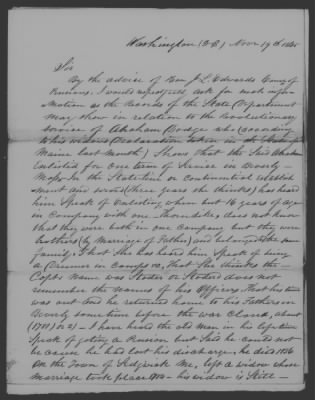 Washington (D.C.) Novr 19th
Sir
By the advise of Hon J L. Edwards Comr of
Pensions. I would respectfully ask for such infor-
mation as the Records of the State Department
may show in relation to the Revolutionary
service of Abraham Dodge who (according
to his widows Declaration taken in the State of
Maine last month) Shows that the said Abraham
Enlisted for one term of Service in Beverly -
Mass in the State line or continental establish-
ment (three years she thinks) has heard
him Speak of Enlisting when but 16 years of age
in Company with one Thorndike, does not know
that they were both in one company but they were
brothers (by Marriage of Father) and belonged to the same
family, that She has heard him Speak of being
a Drummer in Camps &c, that She thinks the -
Capts Name was does not
remember the names of his officers, that his time
was out and he returned home to his Fathers in
Beverly sometime before the war closed, about
(1781 or 2) - I have heard the old man in his lifetime
Speak of getting a Pension but Said he could not
because he had lost his discharge, he died
in the Town of Sedgwick Me, left a widow whose
marriage took place his widow is Still -